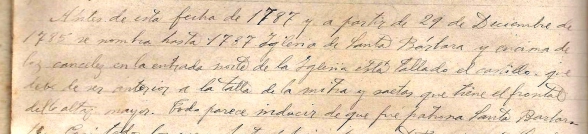 Antes de esta fecha de 1787 y a partir de 29 de Diciembre de
1785 se nombra hasta 1737 Iglesia de Santa Bárbara y encima de
los canceles en la entrada norte de la Iglesia está tallado el castillo que
debe de ser anterior a la talla de la mitra y saetas que tiene el frontal
del altar mayor. Todo parece inducir de que fue patrona Santa Barbara